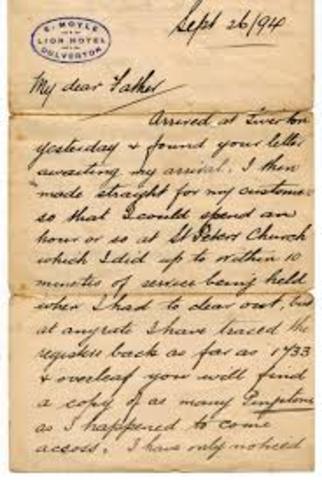 Sept 26/94
E. MOYLE
LION HOTEL
DULVERTON
My dear Father
Arrived at Tiverton
yesterday & found your letter
awaiting my arrival. I then
made straight for my customers
so that I could spend an
hour or so at St Peters Church
which I did up to within 10
minutes of service being held
when I had to clear out, but
at anyrate I have traced the
registers back as far as 1733
& overleaf you will find
a copy of as many
as I happened to come
across. I have only noticed